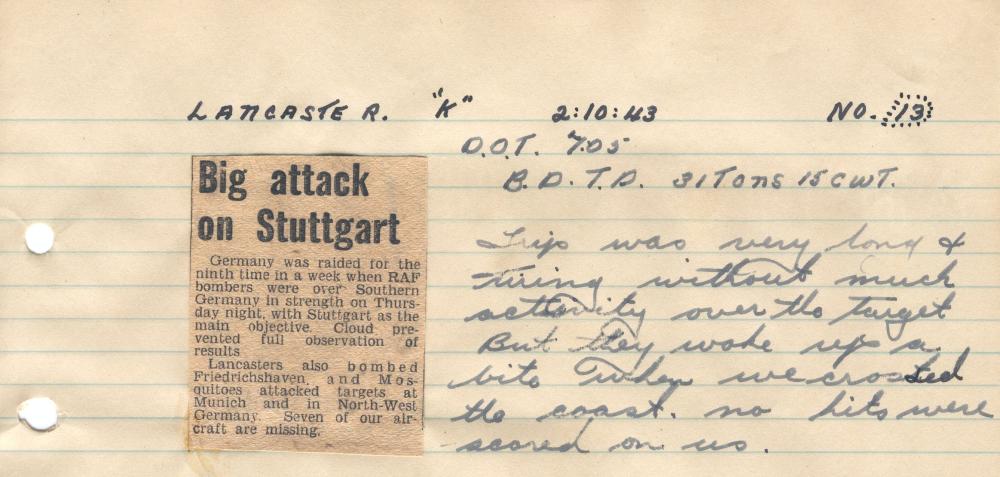 LANCASTER. "K" 2:10:43 NO. 13
D.O.T. 7.05
B.D.T.D. 31Tons 15CWT.
Big attack
on Stuttgart
Germany was raided for the
ninth time in a week when RAF
bombers were over Southern
Germany in strength on Thurs-
day night, with Stuttgart as the
main objective. Cloud pre-
vented full observation of
results
Lancasters also bombed
Friedrichshaven, and Mos-
quitoes attacked targets at
Munich and in North-West
Germany. Seven of our air-
craft are missing.
Trip was very long &
tiring without much
activity over the target
But they woke up a
bit when we crossed
the coast. no hits were
scored on us.